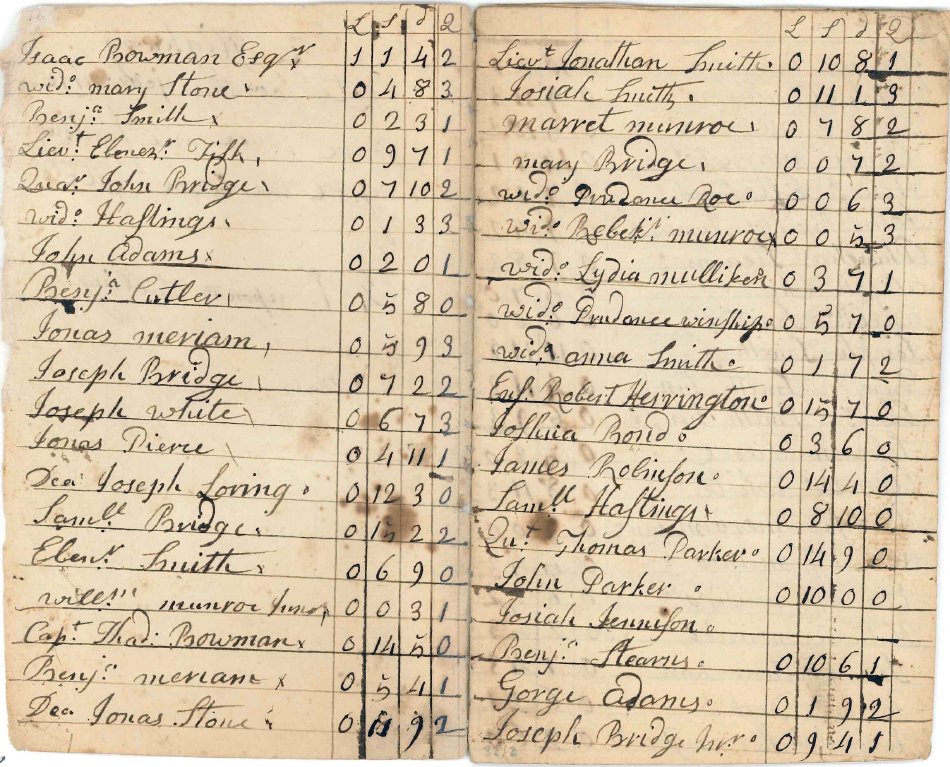 L S d 2
Isaac Bowman Esqr 1 1 4 2
wido mary Stone 0 4 8 3
Benjn Smith 0 2 3 1
Lievt Ebenezr Fisk 0 9 7 1
Quar John Bridge 0 7 10 2
wido Hastings 0 1 3 3
John Adams 0 2 0 1
Benjn Cutler 0 5 8 0
Jonas meriam 0 5 9 3
Joseph Bridge 0 7 2 2
Joseph white 0 6 7 3
Jonas Pierce 0 4 11 1
Dea Joseph Loring 0 12 3 0
Samll Bridge 0 15 2 2
Ebenr Smith 0 6 9 0
willm munroe Junor 0 0 3 1
Capt Thad: Bowman 0 14 5 0
Benjn meriam 0 5 4 1
Dea Jonas Stone 0 11 9 2
L S d 2
Lievt Jonathan Smith 0 10 8 1
Josiah Smith 0 11 1 3
marret munroe 0 7 8 2
mary Bridge 0 0 7 2
wido Prudance Roe 0 0 6 3
wido Rebekh munroe 0 0 5 3
wido Lydia mulliken 0 3 7 1
wido Prudance winship 0 5 7 0
wido anna Smith 0 1 7 2
Ens. Robert Herrington 0 15 7 0
Joshua Bond 0 3 6 0
James Robinson 0 14 4 0
Samll Hastings 0 8 10 0
Qut Thomas Parker 0 14 9 0
John Parker 0 10 0 0
Josiah Jennison
Benjn Stearns 0 10 6 1
Gorge adams 0 1 9 2
Joseph Bridge Junr 0 9 4 1